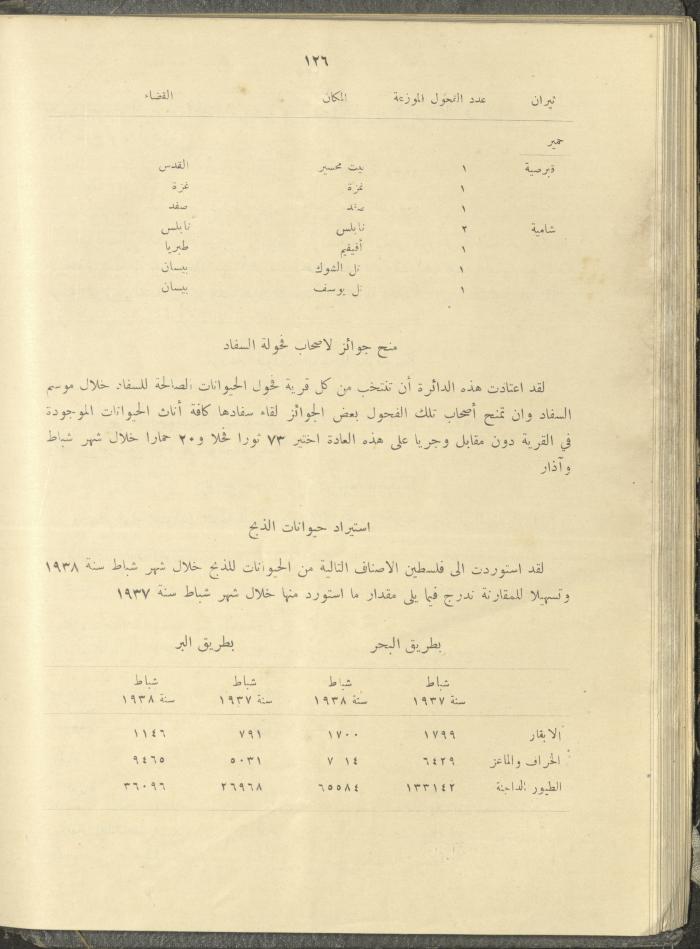 ١٢٦
ثيران عدد الفحول الموزعة المكان القضاء
حمير
قبرصية ١ بيت محسير القدس
١ غزة غزة
١ صفد صفد
شامية ٢ نابلس نابلس
١ أفيقيم طبريا
١ تل الشوك بيسان
١ تل يوسف بيسان
منح جوائز لاصحاب فحولة السفاد
لقد اعتادت هذه الدائرة أن تنتخب من كل قرية فحول الحيوانات الصالحة للسفاد خلال موسم
السفاد وان تمنح أصحاب تلك الفحول بعض الجوائز لقاء سفادها كافة أناث الحيوانات الموجودة
في القرية دون مقابل وجريا على هذه العادة اختير ٧٣ ثورا فحلا و٢٠ حمارا خلال شهر شباط
وآذار
استيراد حيوانات الذبح
لقد استوردت الى فلسطين الاصناف التالية من الحيوانات للذبح خلال شهر شباط سنة ١٩٣٨
وتسهيلا للمقارنة ندرج فيما يلى مقدار ما استورد منها خلال شهر شباط سنة ١٩٣٧
بطريق البحر بطريق البر
شباط شباط شباط شباط
سنة ١٩٣٧ سنة ١٩٣٨ سنة ١٩٣٧ سنة ١٩٣٨
الابقار ١٧٩٩ ١٧٠٠ ٧٩١ ١١٤٦
الخراف والماعز ٦٤٢٩ ٧ ١٤ ٥٠٣١ ٩٤٦٥
الطيور الداجنة ١٣٣١٤٢ ٦٥٥٨٤ ٢٦٩٦٨ ٣٦٠٩٦